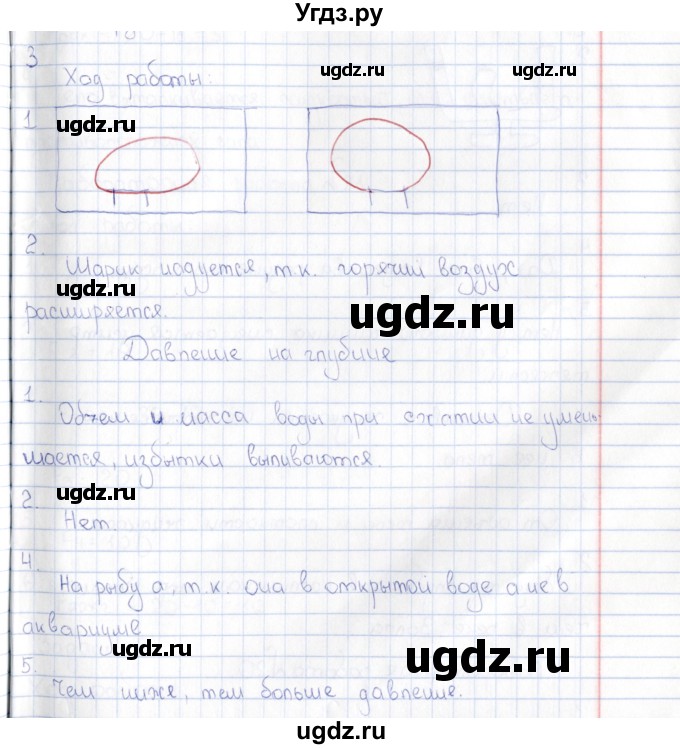 Угдз.ру
3
Ход работы:
ugdz.ru ugdz.ru
1
ugdz.ru
2.
Шарик надуется, т.к. горячий воздух
ugdz.ru
расширяется.
ugdz.ru
Давление на глубине
1.
Объем и масса воды при сжатии не умень-
шается, избытки выливаются.
ugdz.ru
2.
Нет.
4.
На рыбу а, т.к. она в открытой воде а не в
аквариуме
ugdz.ru
ugdz.ru
5.
Чем ниже, тем больше давление.
ugdz.ru